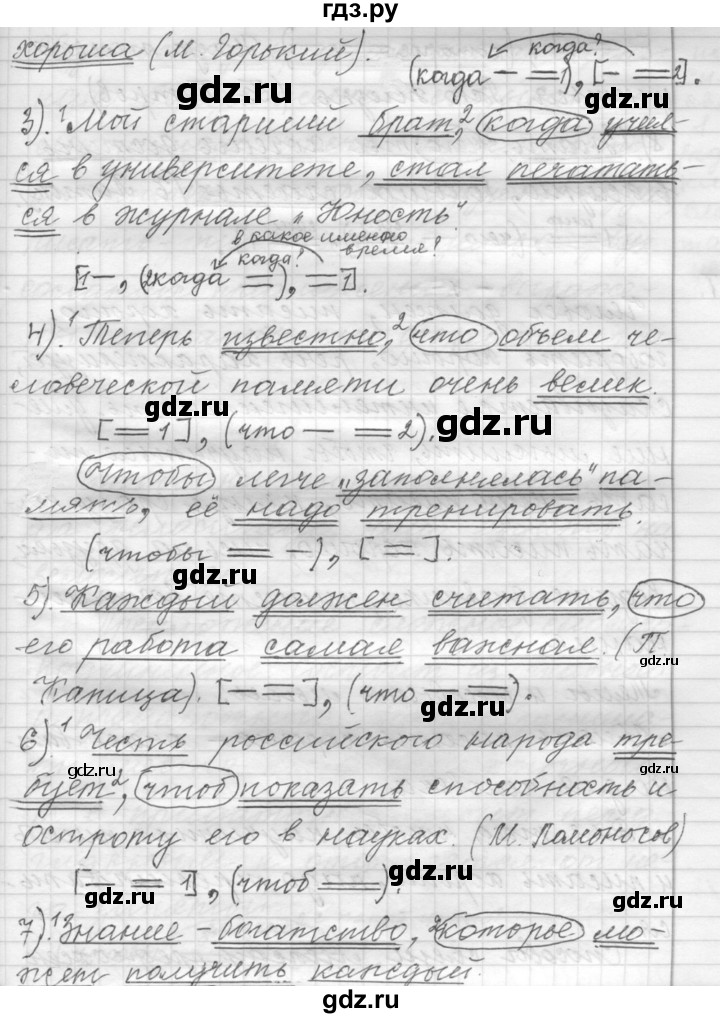 гдз.ру
хороша (М. Горький). когда?
(когда – =1), [– =2].
3). ¹Мой старший брат,² когда учил-
ся в университете, стал печатать-
ся в журнале „Юность".
в какое именно
когда? время?
[1–, (2когда =), =1].
4). ¹Теперь известно,² что объем че-
ловеческой памяти очень велик.
[=1], (что – =2).
Чтобы легче „заполнялась" па-
мять, её надо тренировать.
(чтобы = –), [=].
5). Каждый должен считать, что
его работа самая важная. (П
Капица). [– =], (что – =).
6). ¹Честь российского народа тре-
бует², чтоб показать способность и
остроту его в науках. (М. Ломоносов)
[– = 1], (чтоб =).
7). ¹Знание – богатство, ²которое мо-
жет получить каждый.
gdz.ru